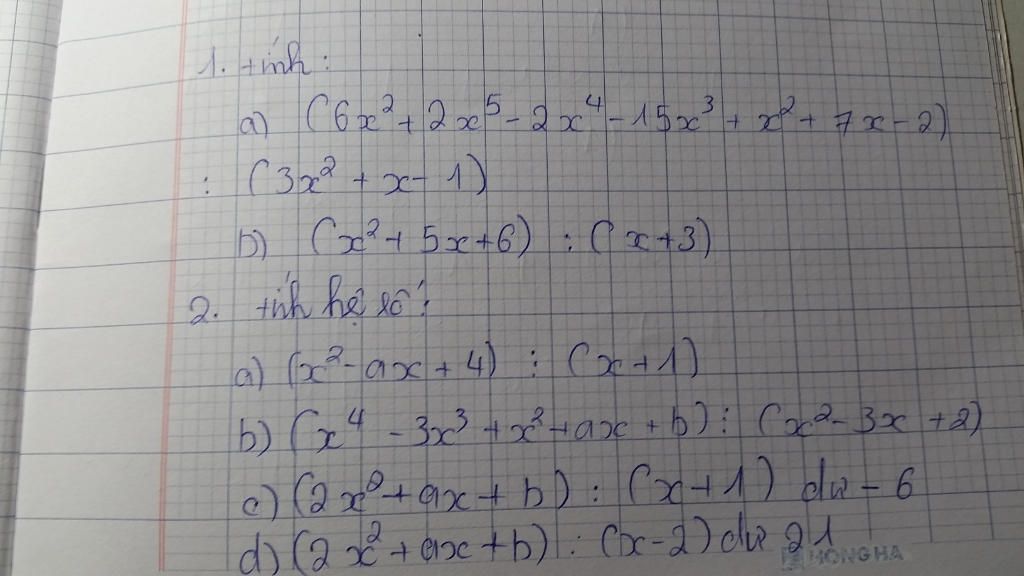 1. tính:
a) (6x² + 2x⁵ - 2x⁴ - 15x³ + x² + 7x - 2)
: (3x² + x - 1)
b) (x² + 5x + 6) : (x + 3)
2. tính hệ số:
a) (x² - ax + 4) : (x + 1)
b) (x⁴ - 3x³ + x² + ax + b) : (x² - 3x + 2)
c) (2x² + ax + b) : (x + 1) dư - 6
d) (2x² + ax + b) : (x - 2) dư 21
HONG HA